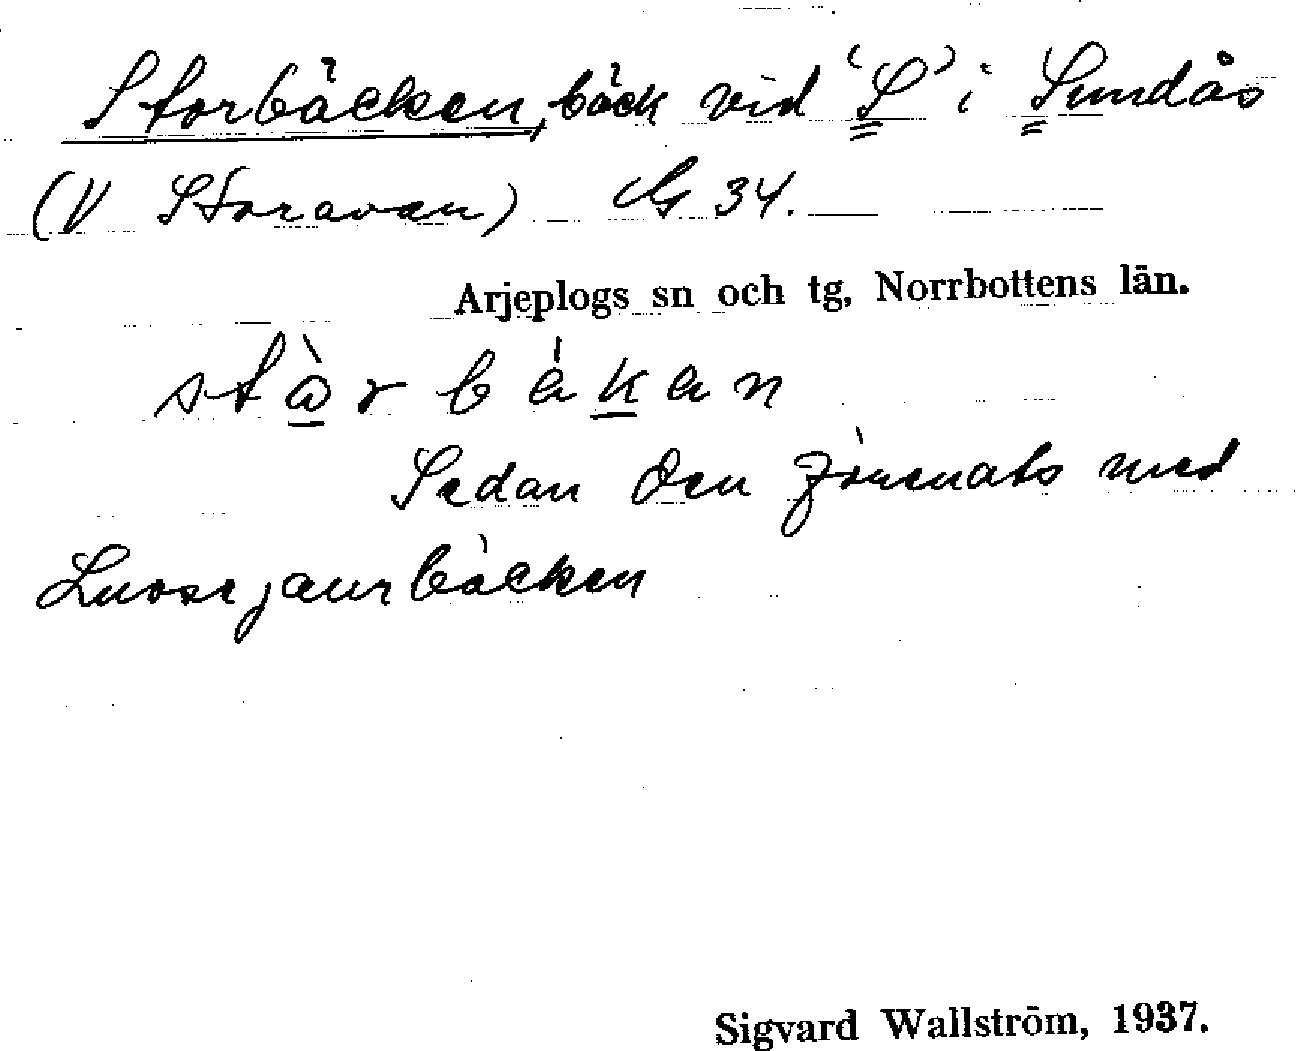 Storbäcken, bäck vid 'S' i Sundås
(V Storavan) G 34.
Arjeplogs sn och tg, Norrbottens län.
stàrbákan
Sedan den förenats med
Luossjaurbäcken
Sigvard Wallström, 1937.